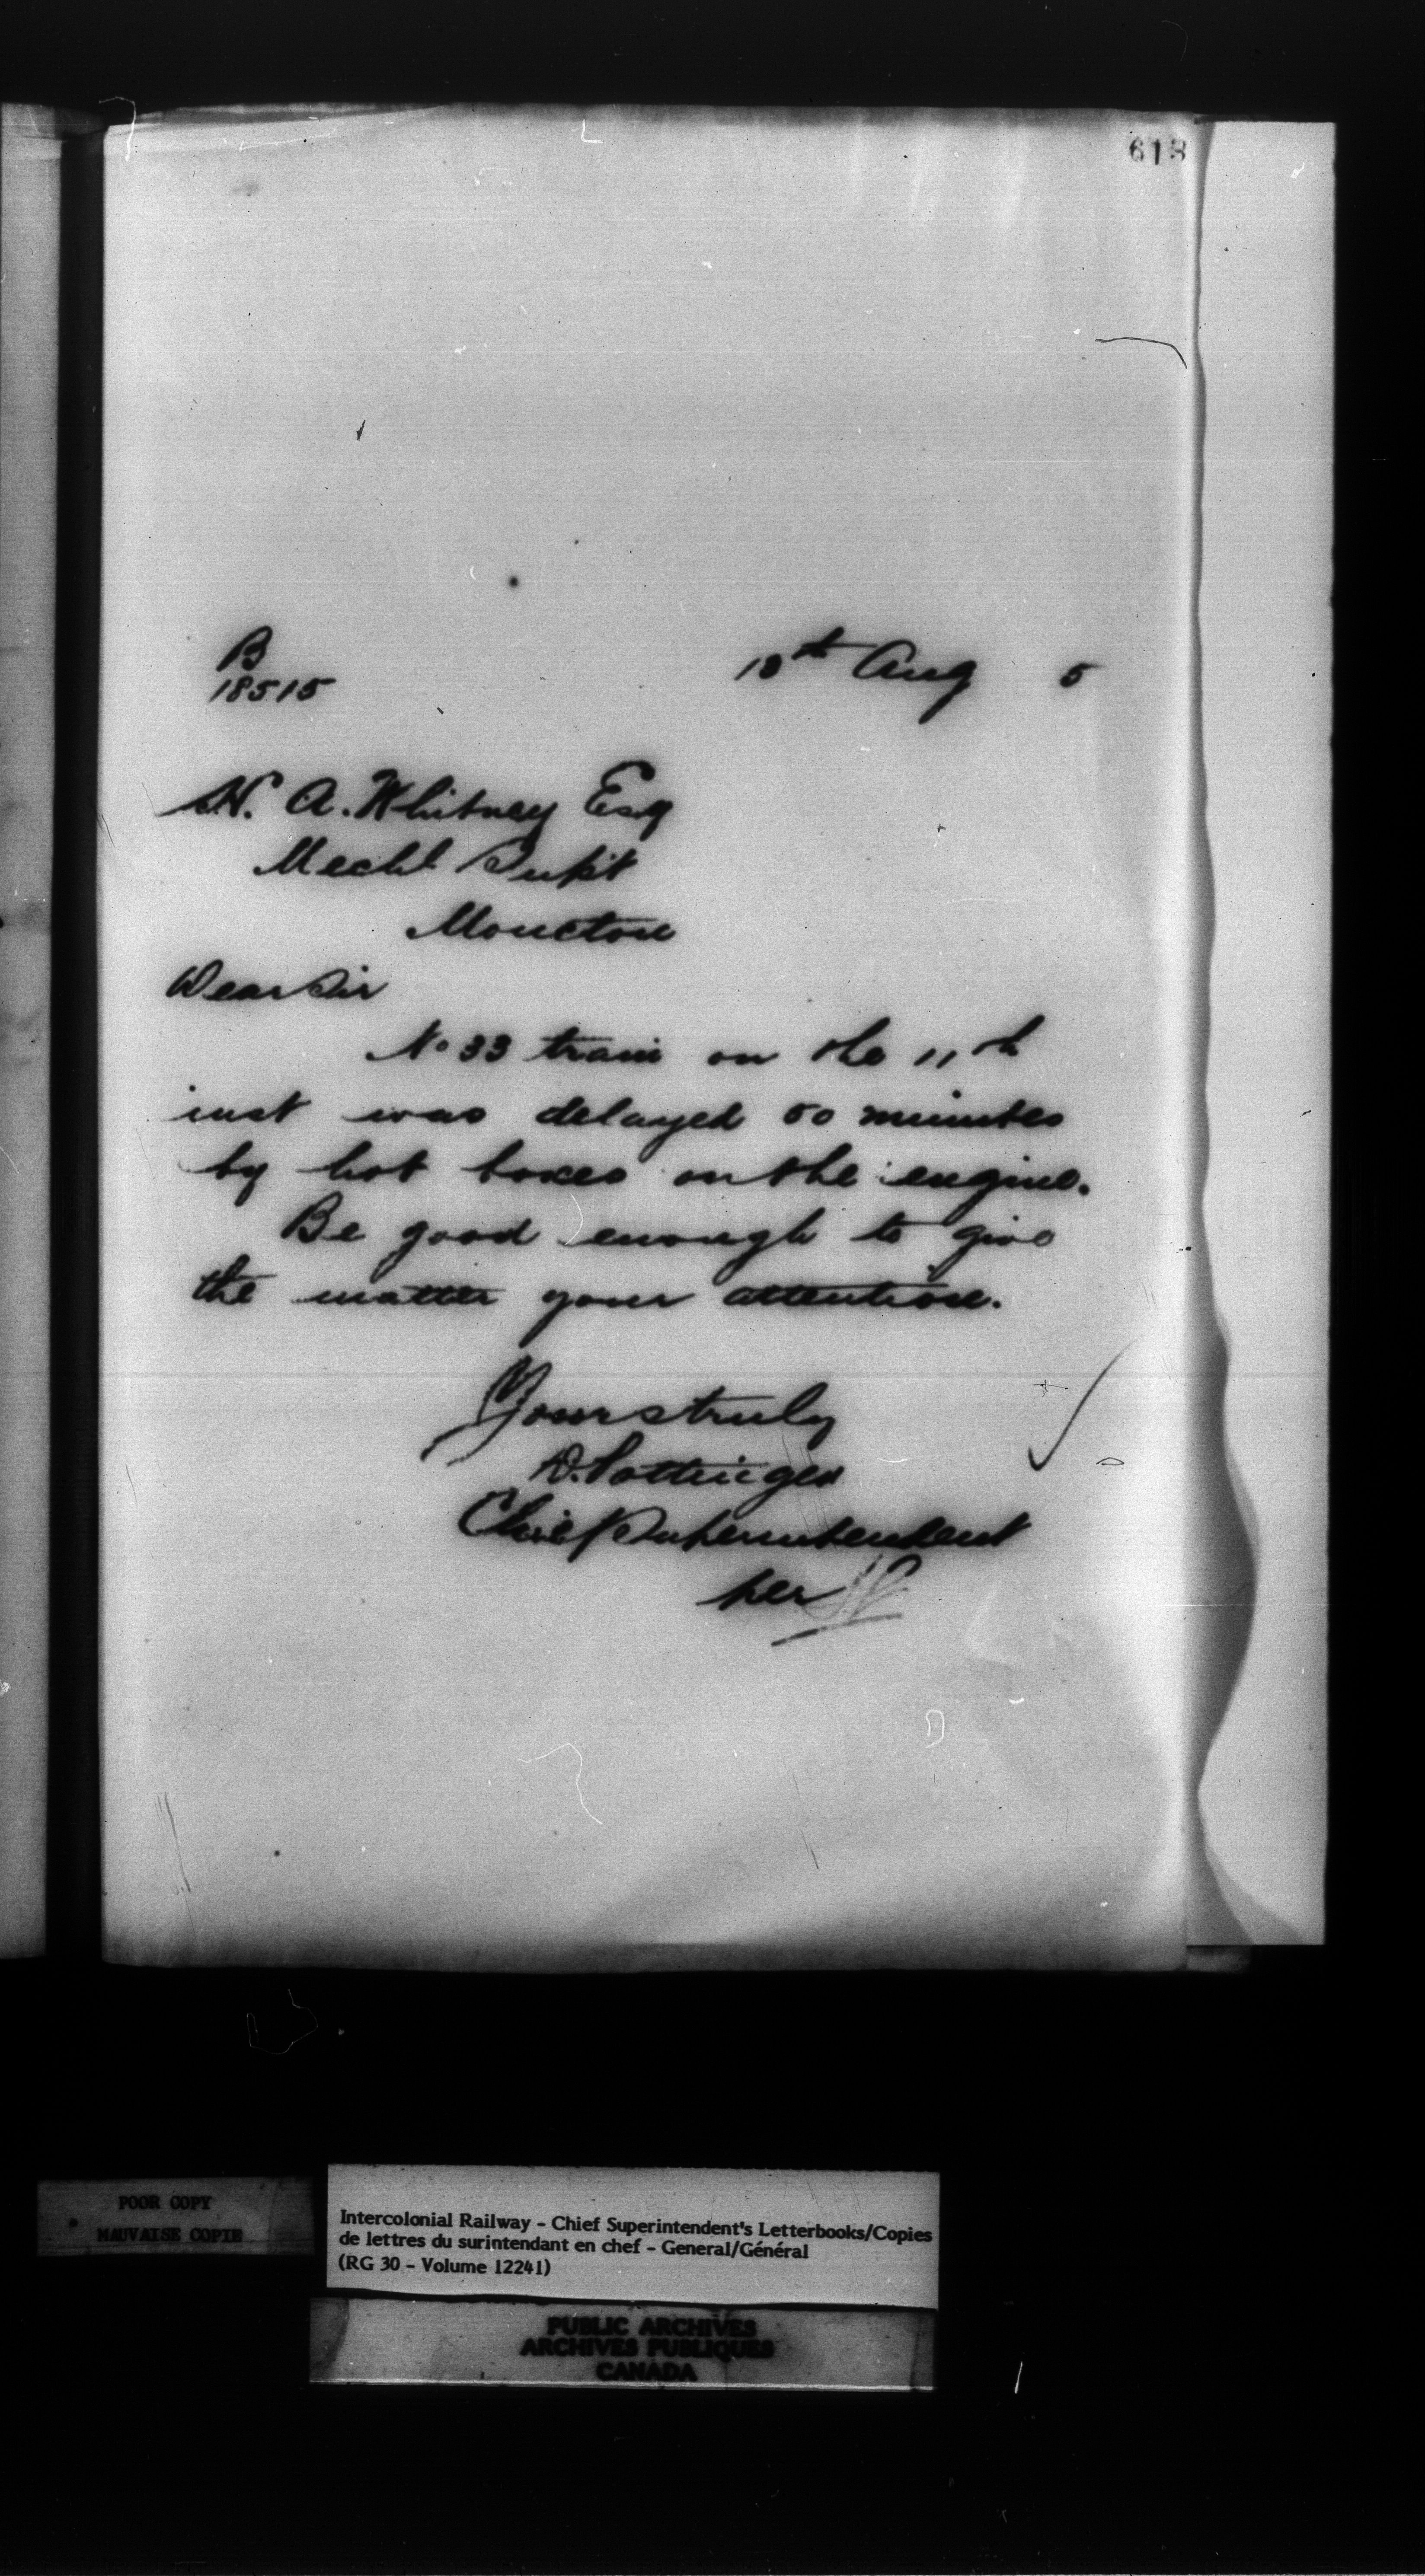 618
B
18515
13th Aug 5
H. A. Whitney Esq
Mechl Supt
Moncton
Dear Sir
No 33 train on the 11th
inst was delayed 50 minutes
by hot boxes on the engine.
Be good enough to give
the matter your attention.
Yours truly
D. Pottinger
Chief Superintendent
per
POOR COPY
MAUVAISE COPIE
Intercolonial Railway - Chief Superintendent's Letterbooks/Copies
de lettres du surintendant en chef - General/Général
(RG 30 - Volume 12241)
PUBLIC ARCHIVES
ARCHIVES PUBLIQUES
CANADA